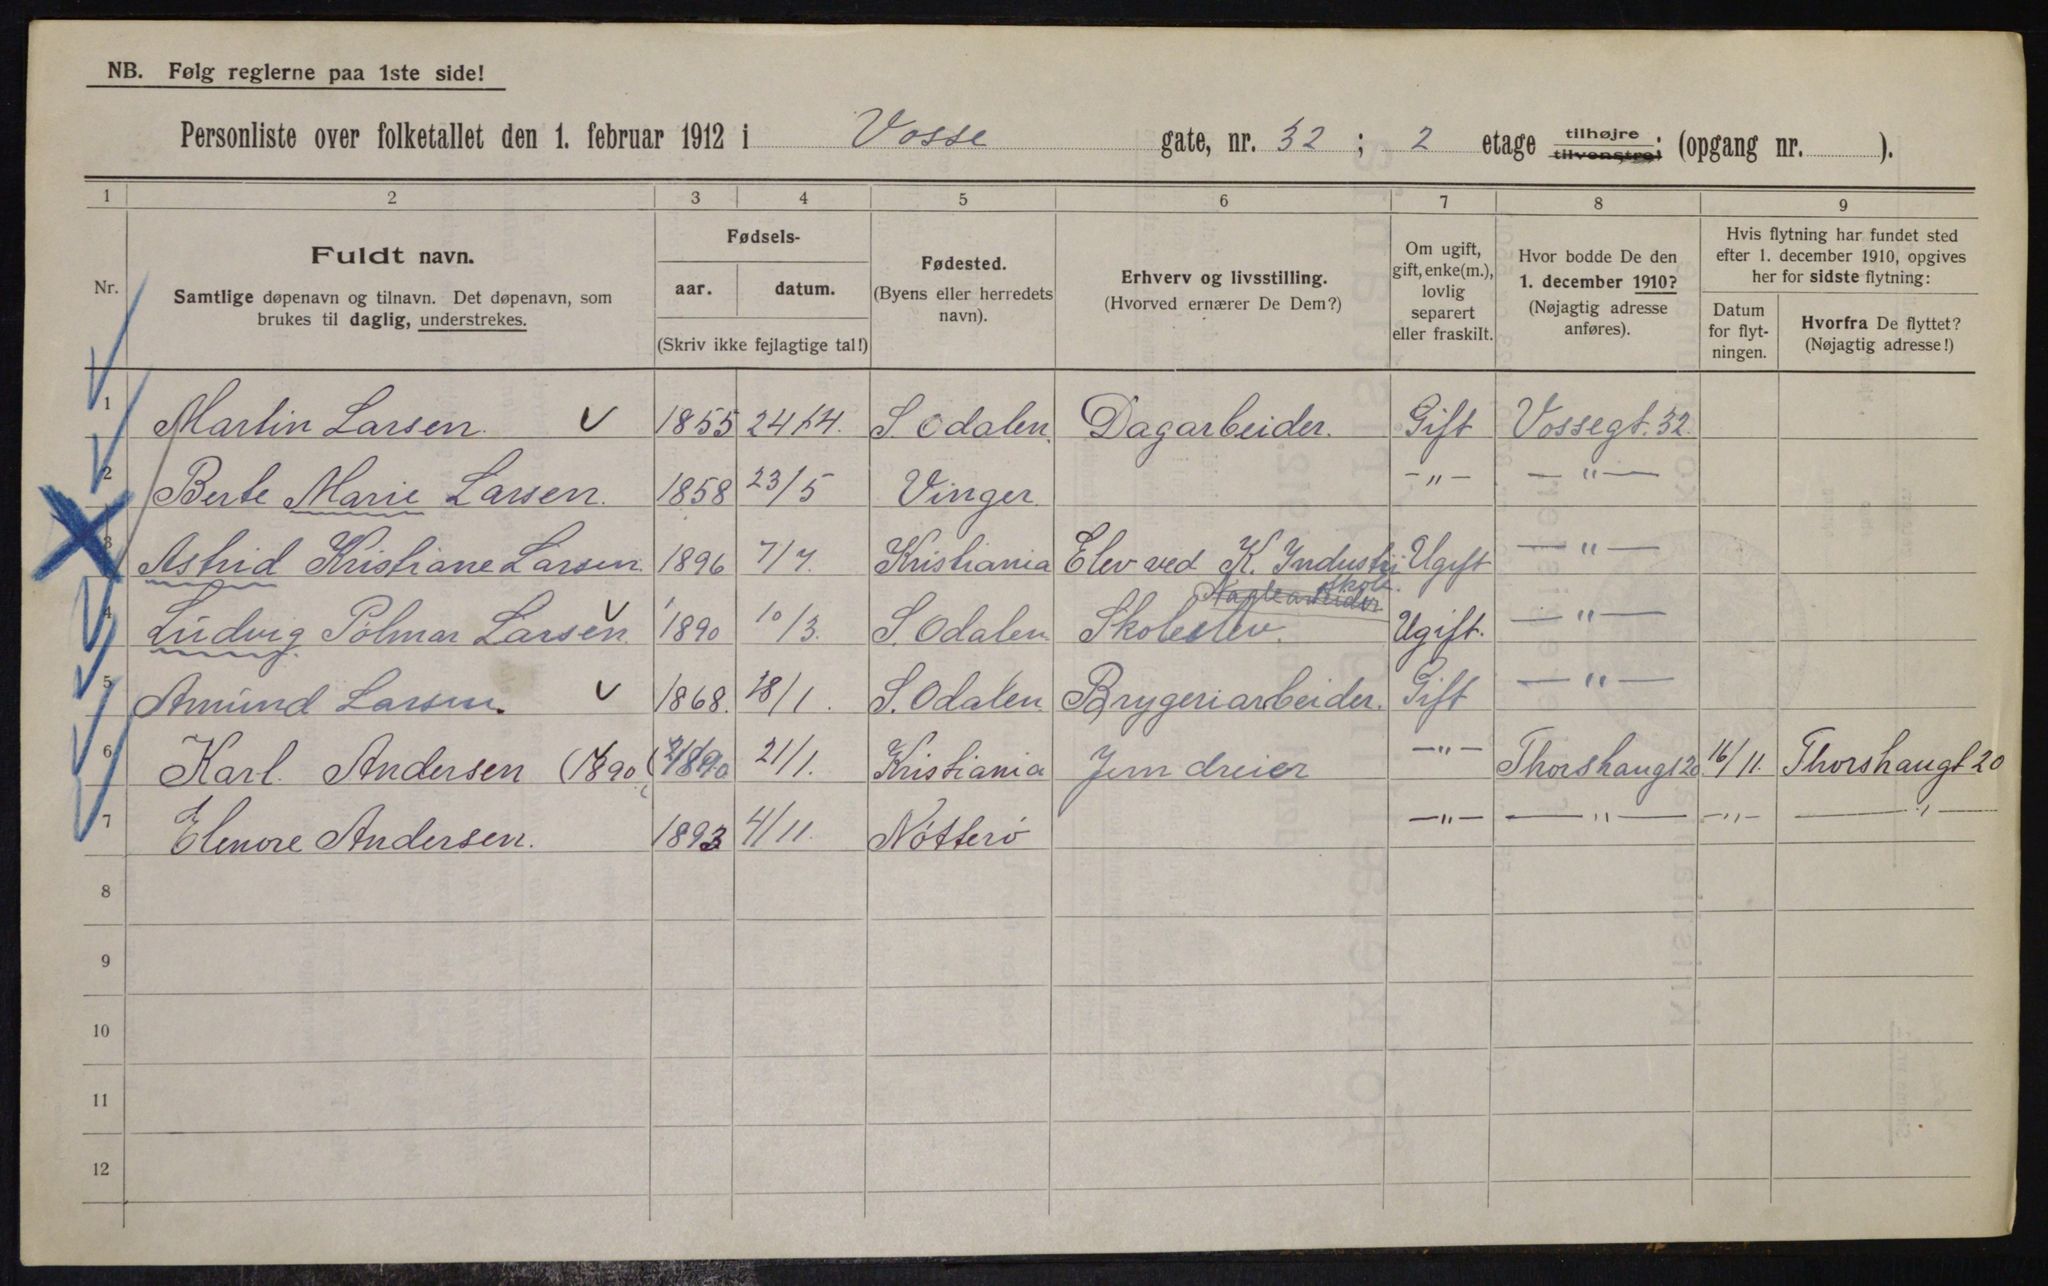 NB. Følg reglerne paa 1ste side!
Personliste over folketallet den 1. februar 1912 i Vosse gate, nr. 32 ; 2 etage tilhøjre tilvenstre; (opgang nr. ).
1 2 3 4 5 6 7 8 9
Nr. Fuldt navn. Samtlige døpenavn og tilnavn. Det døpenavn, som brukes til daglig, understrekes.
Fødsels- aar. datum. (Skriv ikke fejlagtige tal!)
Fødested. (Byens eller herredets navn).
Erhverv og livsstilling. (Hvorved ernærer De Dem?)
Om ugift, gift, enke(m.), lovlig separert eller fraskilt.
Hvor bodde De den 1. december 1910? (Nøjagtig adresse anføres).
Hvis flytning har fundet sted efter 1. december 1910, opgives her for sidste flytning:
Datum for flytningen. Hvorfra De flyttet? (Nøjagtig adresse!)
1 Martin Larsen. V 1855 24/4. S. Odalen. Dagarbeider. Gift Vossegt. 32.
2 Berte Marie Larsen. 1858 23/5 Vinger — " — — " —
3 Astrid Kristiane Larsen. 1896 7/7. Kristiania Elev ved K. Industri skole. Ugift — " —
4 Ludvig Polmar Larsen V 1890 10/3. S. Odalen. Skoleelev. Ugift. — " —
5 Amund Larsen. V 1868. 18/1. S. Odalen. Brygeriarbeider. Gift — " —
6 Karl Andersen (1890) 1890 21/1. Kristiania Jern dreier — " — Thorshaugt 20 16/11. Thorshaugt 20
7 Elenore Andersen. 1893 4/11. Nötterö — " — — " — — " — — " —
8
9
10
11
12